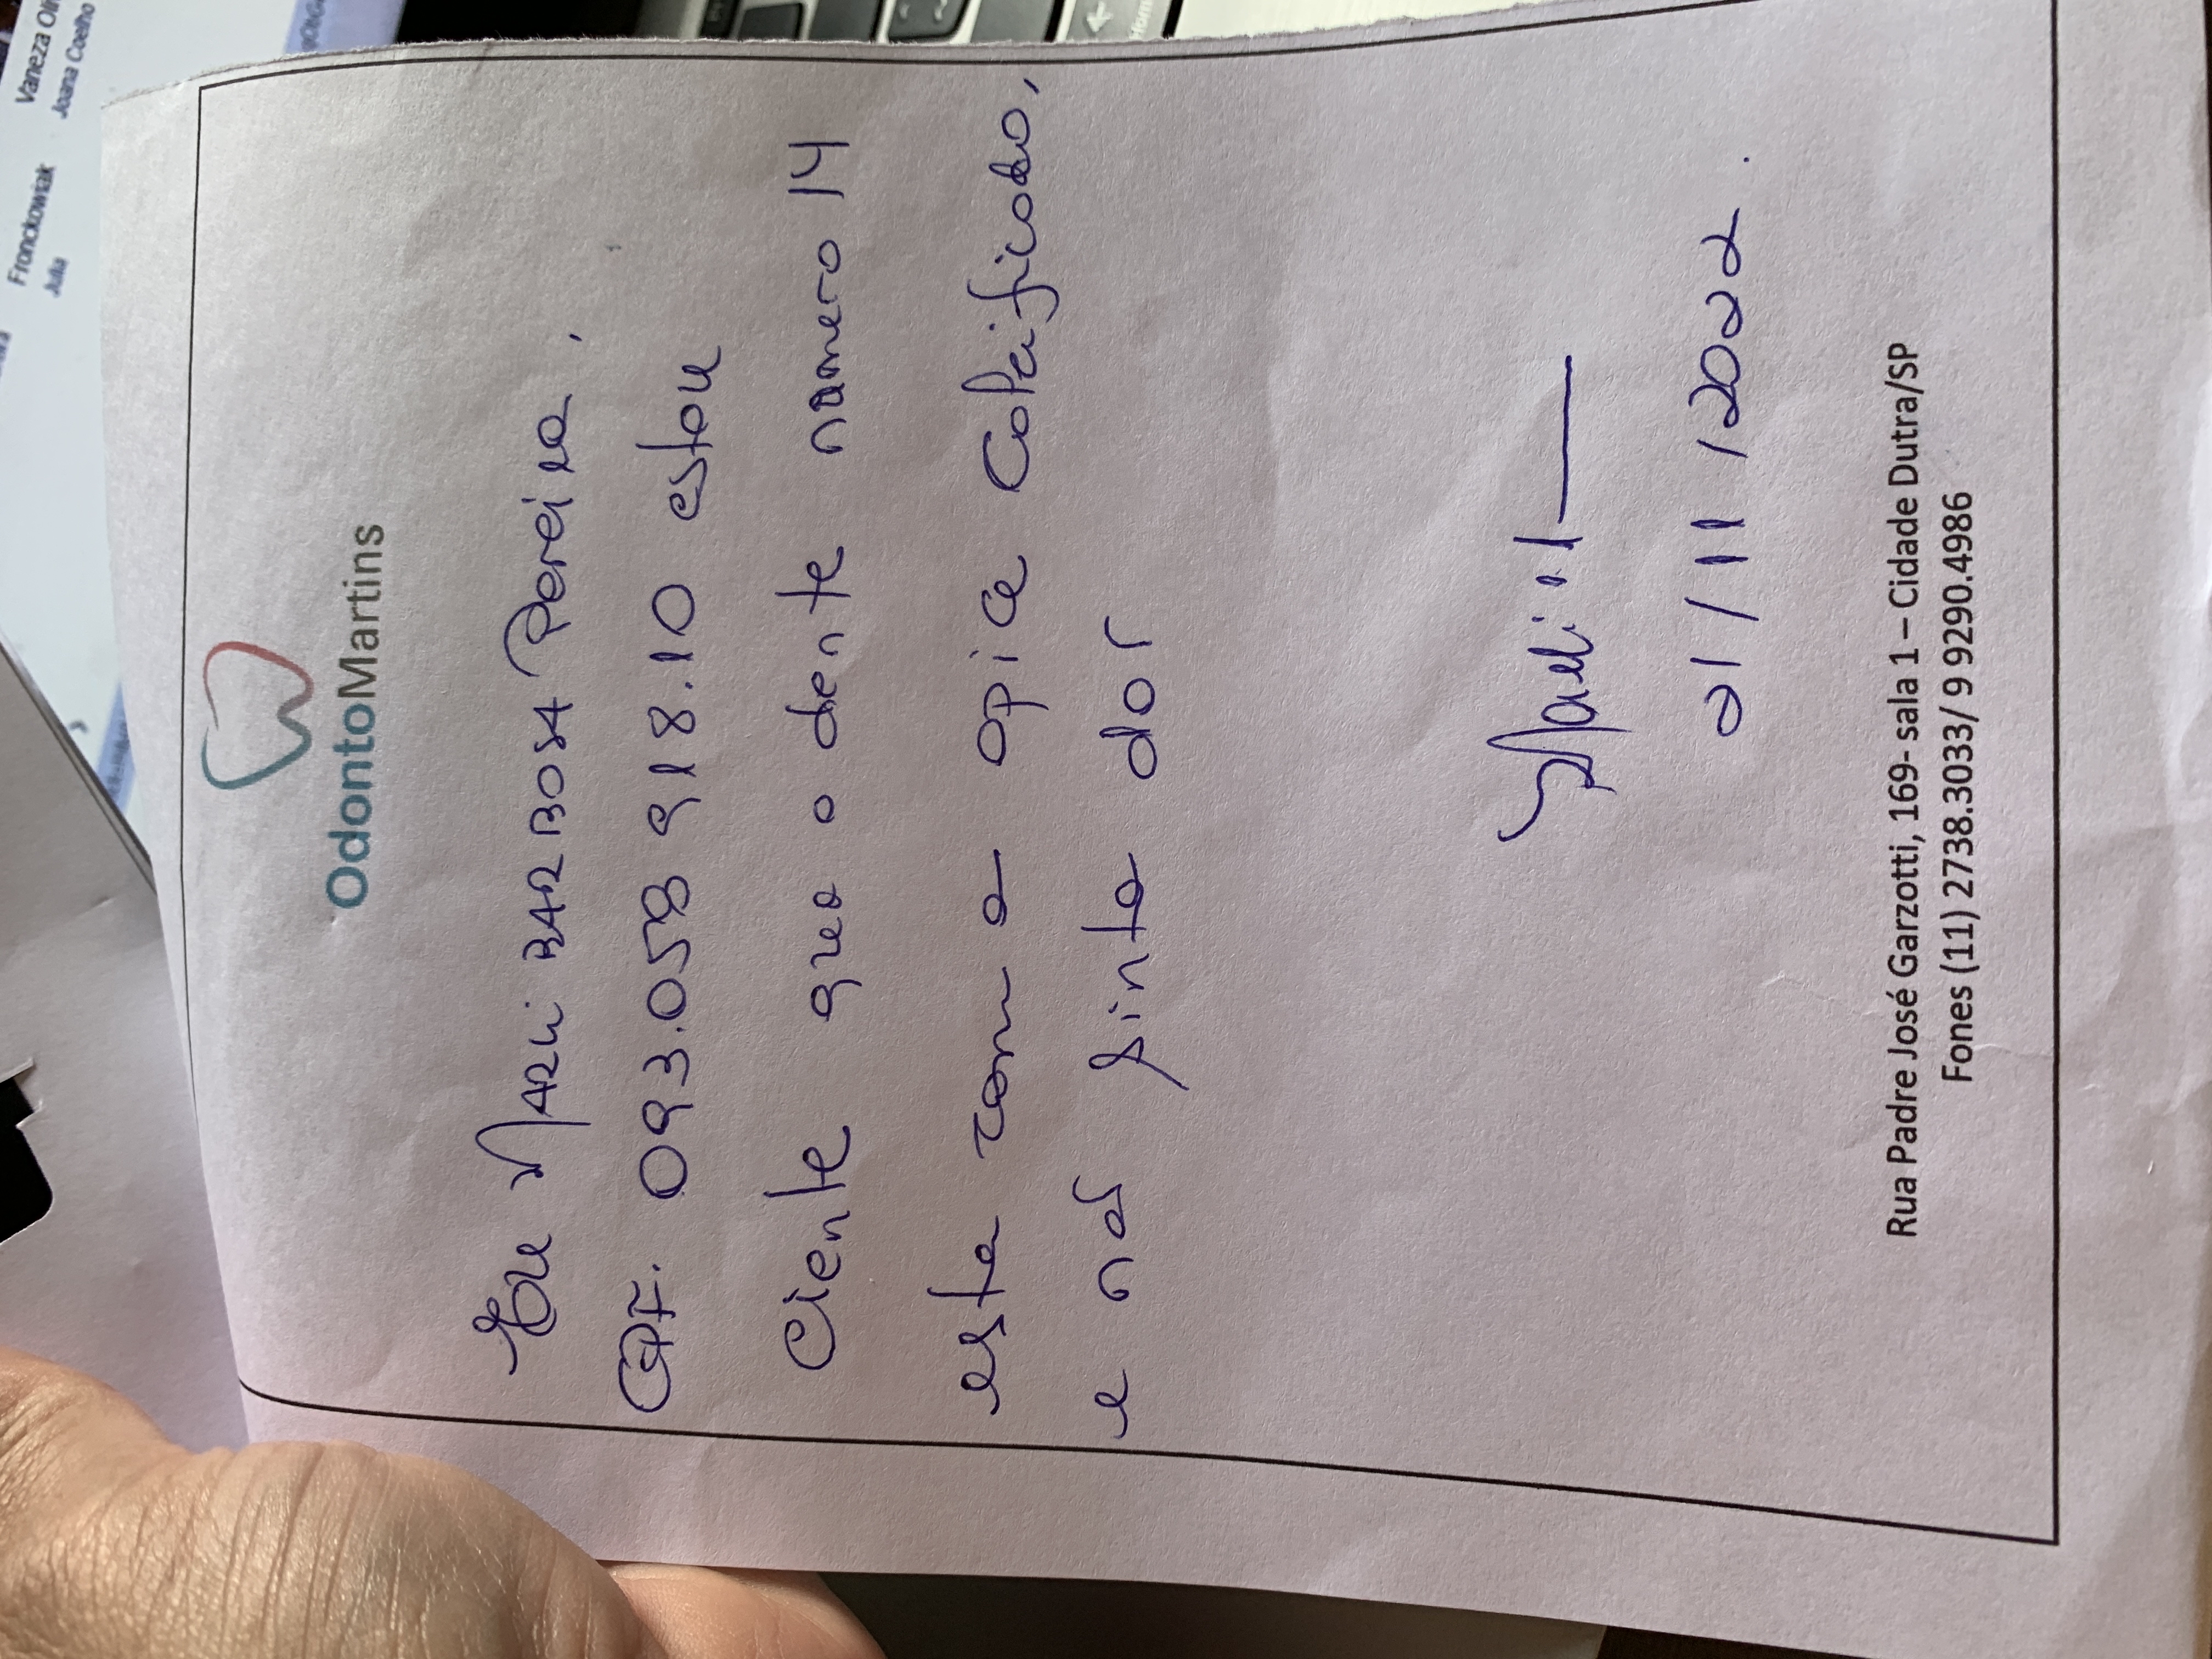 OdontoMartins
Eu Marli BARBOSA Pereira,
CPF. 093.058 918.10 estou
Ciente que o dente numero 14
esta com o apice Calcificado,
e não sinto dor
Marli
21/11/2022.
Rua Padre José Garzotti, 169- sala 1 – Cidade Dutra/SP
Fones (11) 2738.3033/ 9 9290.4986
Fronckowiak
Julia
Vaneza
Joana Coelho